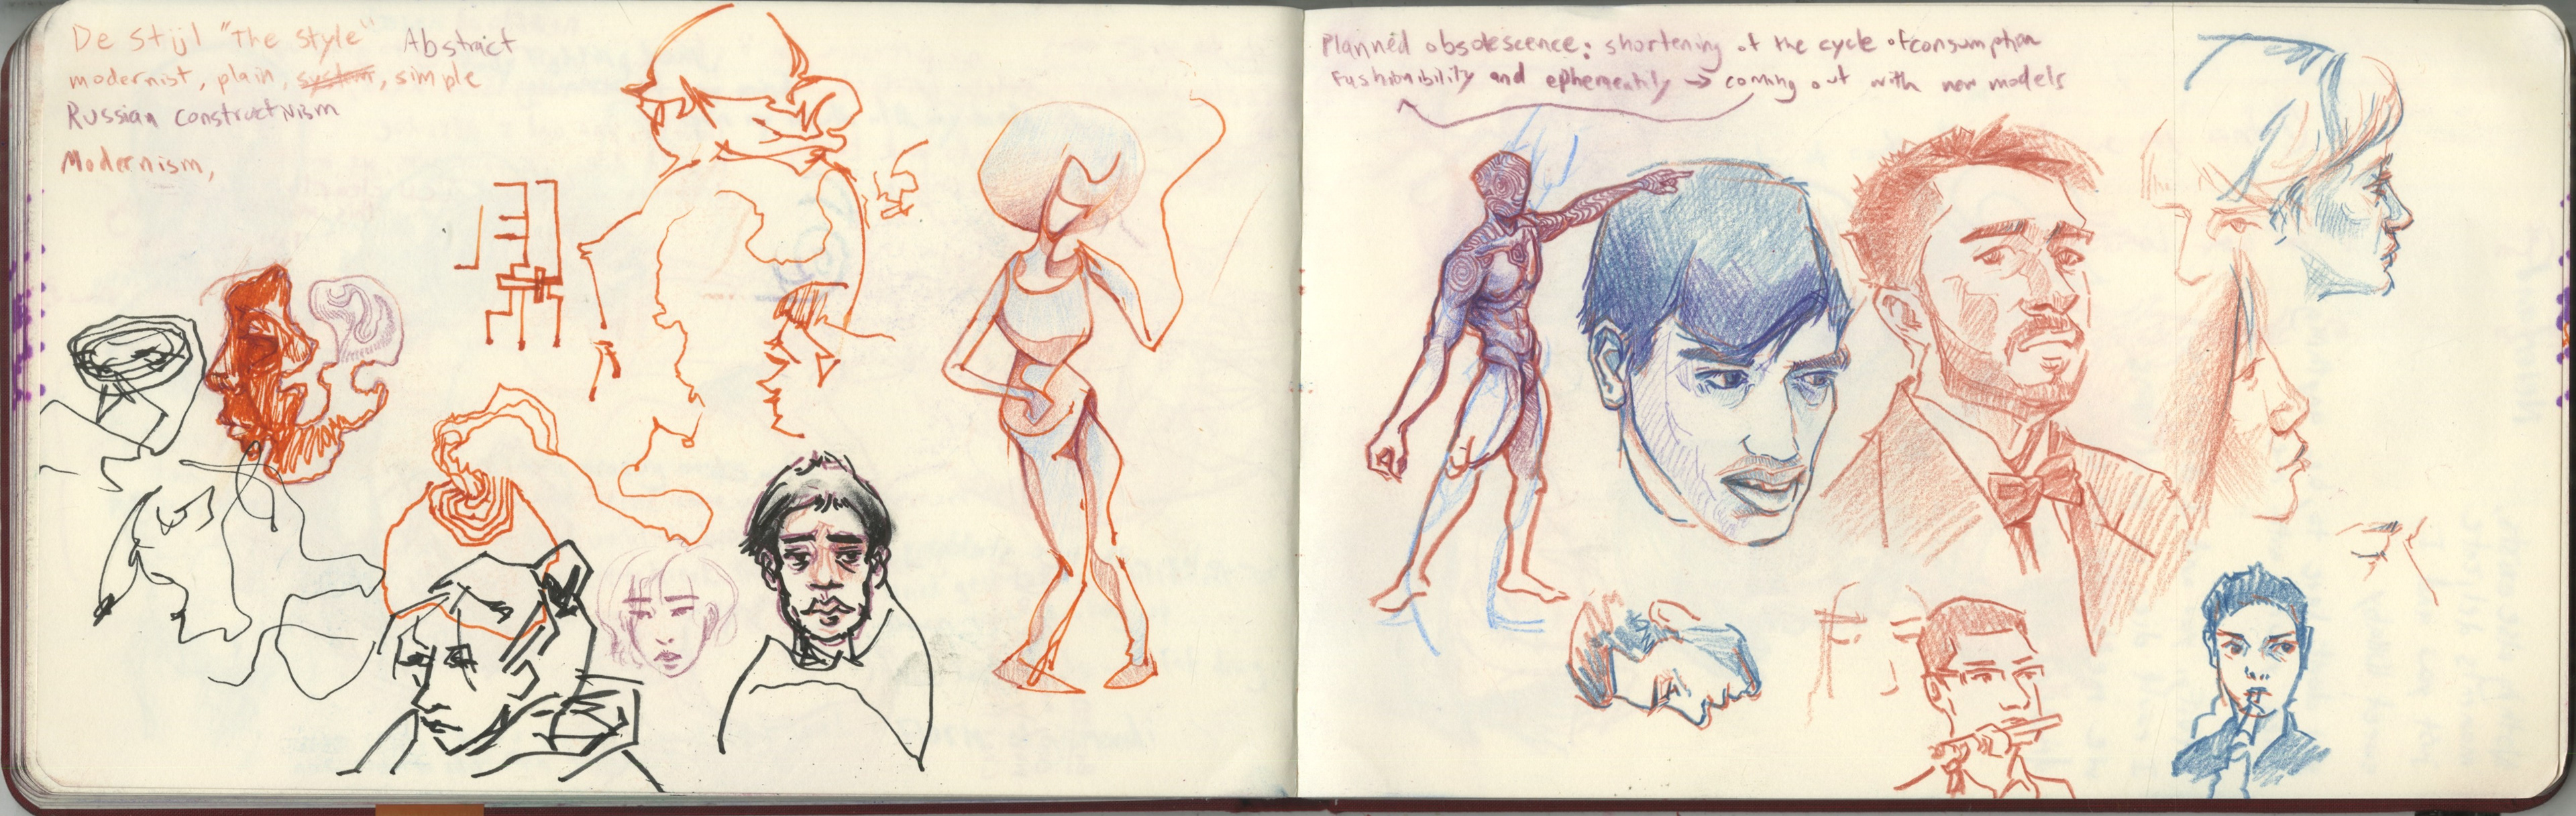 De Stijl "the style" Abstract
modernist, plain, system, simple
Russian constructivism
Modernism,
Planned obsolescence: shortening of the cycle of consumption
Fashionibility and ephemerality → coming out with new models